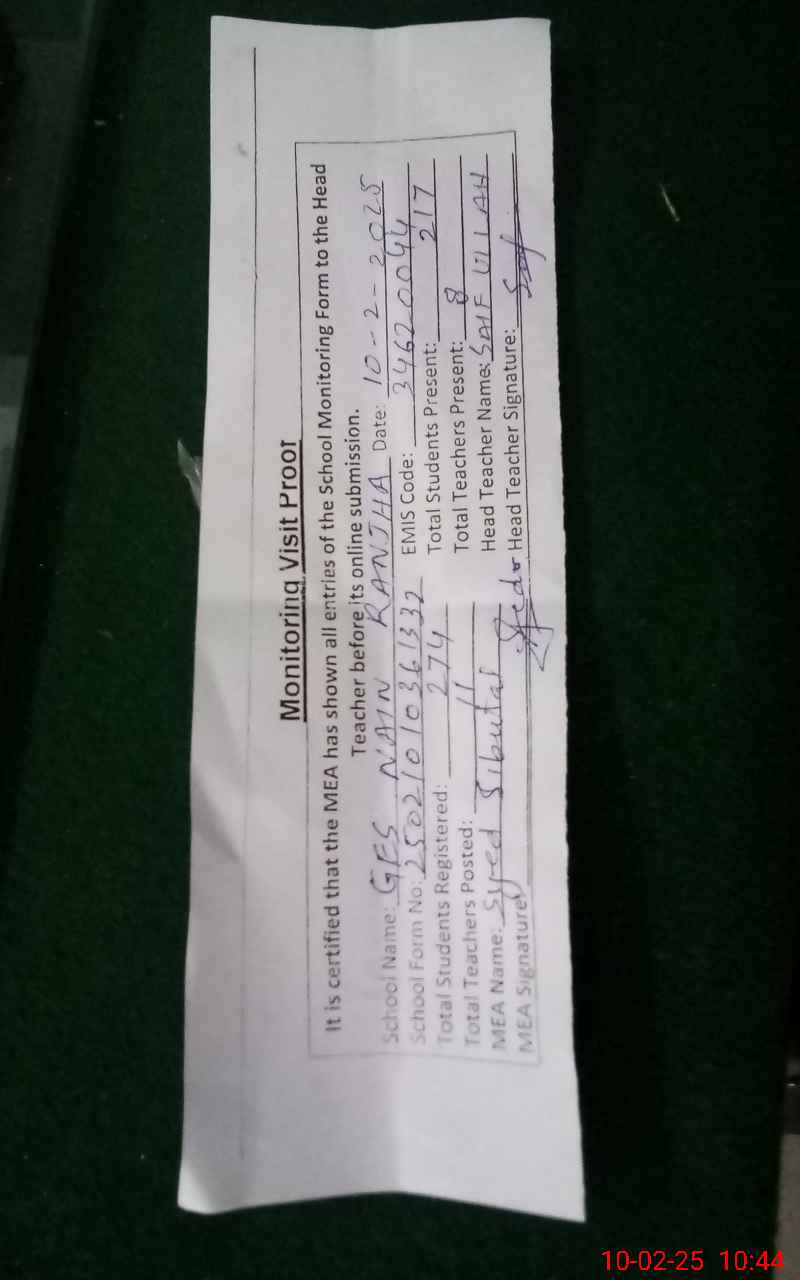 Monitoring Visit Proof
It is certified that the MEA has shown all entries of the School Monitoring Form to the Head
Teacher before its online submission.
School Name: GES NAIN RANJHA Date: 10-2-2025
School Form No: 25021010361332 EMIS Code: 34620044
Total Students Registered: 274 Total Students Present: 217
Total Teachers Posted: 11 Total Teachers Present: 8
MEA Name: Syed Sibutal Head Teacher Name: SAIF ULLAH
MEA Signature: Head Teacher Signature:
10-02-25 10:44